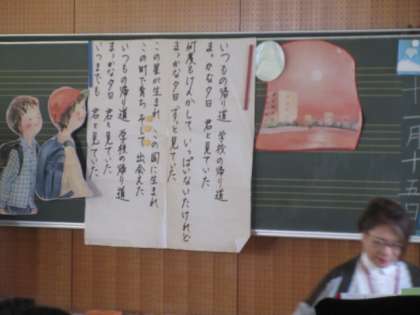 いつもの帰り道 学校の帰り道
まっかな夕日 君と見ていた
何度もけんかして いっぱいないたけれど
まっかな夕日 ずっと見ていた
この星が生まれ この国に生まれ
この町で育ち そして 出会えた
いつもの帰り道 学校の帰り道
まっかな夕日 君と見ていた
いつまでも 君と見ていた